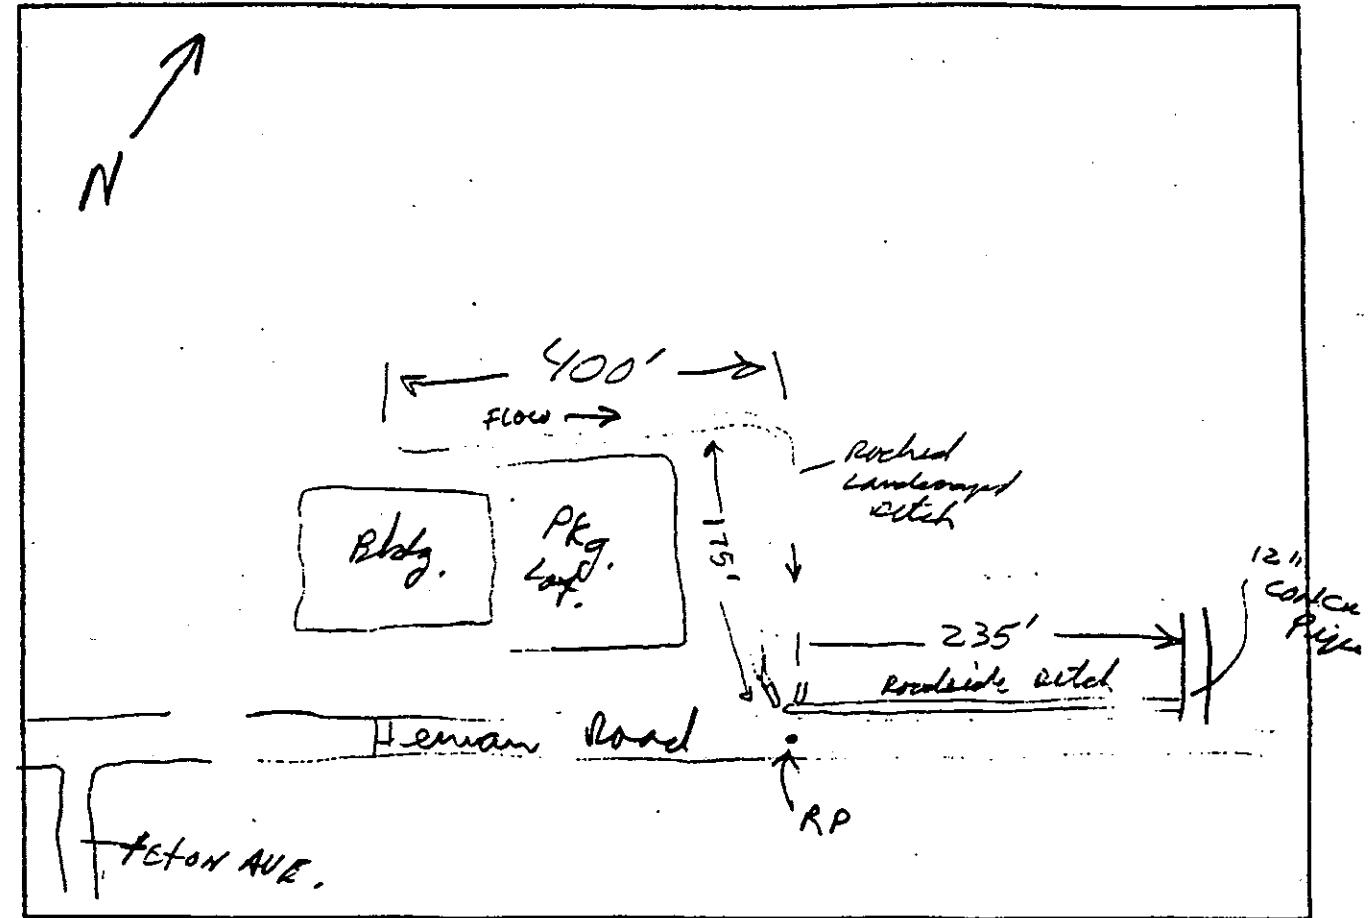 N
400'
FLOW
Rocked
Landscaped
Ditch
Bldg.
Pkg.
Lot.
175'
12"
Concr
Pipe
235'
Roadside Ditch
Herman Road
RP
Teton AVE.